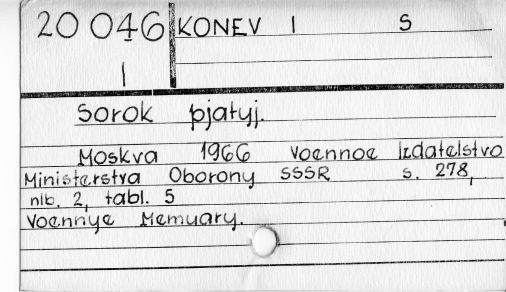 20 046 KONEV I S
I
Sorok pjatyj.
Moskva 1966 Voennoe Izdatelstvo
Ministerstva Oborony SSSR s. 278,
nlb. 2, tabl. 5
Voennye Memuary.